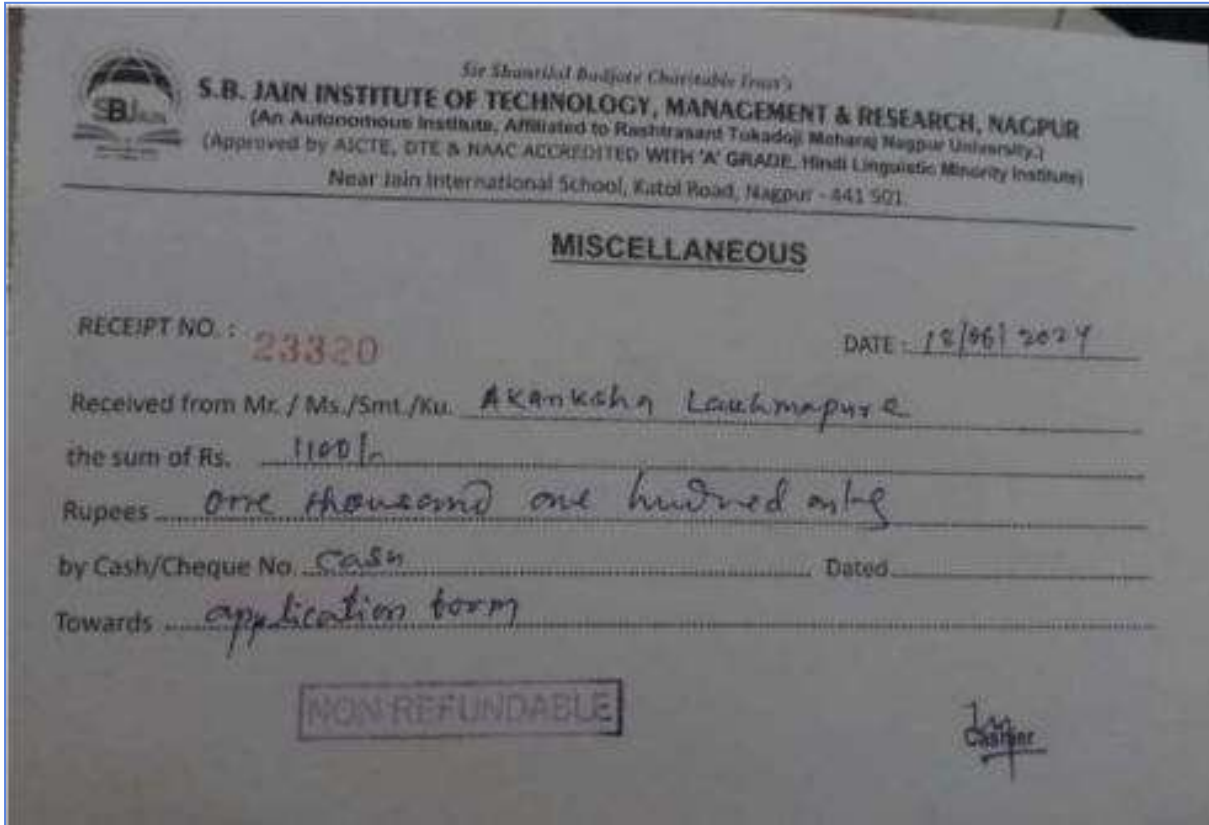 Sir Shantilal Badjate Charitable Trust's
SBJAIN
S.B. JAIN INSTITUTE OF TECHNOLOGY, MANAGEMENT & RESEARCH, NAGPUR
(An Autonomous Institute, Affiliated to Rashtrasant Tukadoji Maharaj Nagpur University.)
(Approved by AICTE, DTE & NAAC ACCREDITED WITH 'A' GRADE, Hindi Linguistic Minority Institute)
Near Jain International School, Katol Road, Nagpur - 441 501.
MISCELLANEOUS
RECEIPT NO. : 23320 DATE : 18/06/2024
Received from Mr. / Ms./Smt./Ku. Akanksha
the sum of Rs. 1100/-
Rupees one thousand one hundred only
by Cash/Cheque No. Cash Dated
Towards application form
NON REFUNDABLE
Cashier